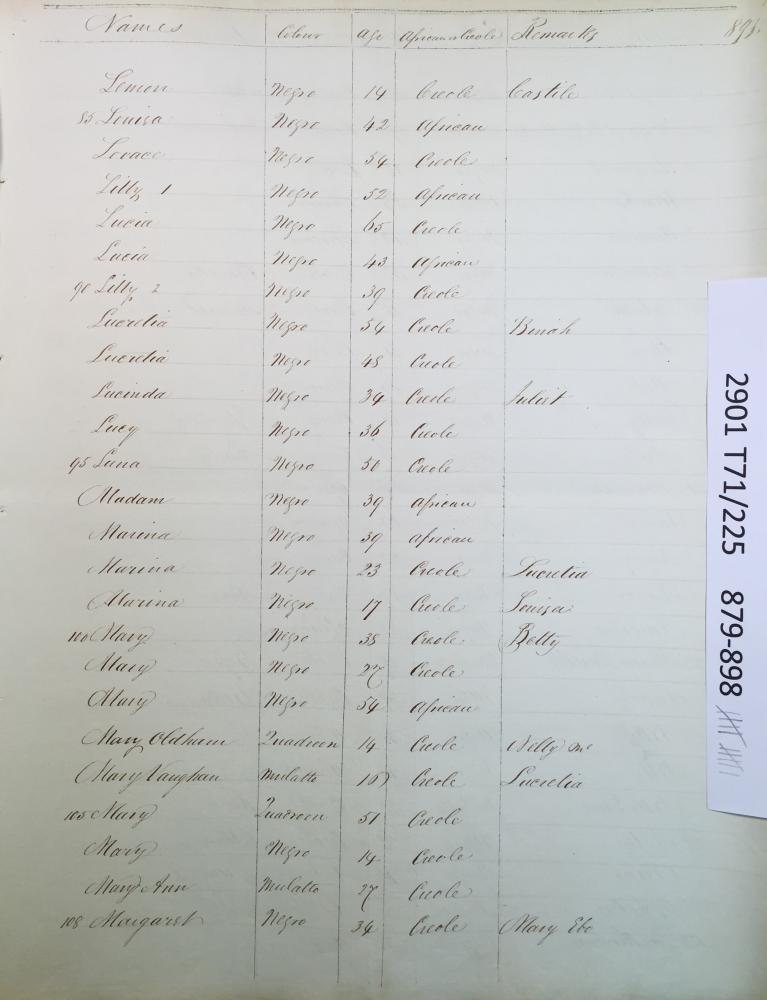 Names Colour Age African or Creole Remarks 895.
Lemon Negro 14 Creole Castile
85 Louisa Negro 42 African
Lovace Negro 54 Creole
Lilly 1 Negro 52 African
Lucia Negro 65 Creole
Lucia Negro 43 African
90 Lilly 2 Negro 39 Creole
Lucretia Negro 54 Creole Binah
Lucretia Negro 48 Creole
Lucinda Negro 34 Creole Juliet
Lucy Negro 36 Creole
95 Luna Negro 50 Creole
Madam Negro 39 African
Marina Negro 39 African
Marina Negro 23 Creole Lucretia
Marina Negro 17 Creole Louisa
100 Mary Negro 38 Creole Betty
Mary Negro 27 Creole
Mary Negro 54 African
Mary Oldham Quadroon 14 Creole Nelly
Mary Vaughan Mulatto Creole Lucretia
105 Mary Quadroon 51 Creole
Mary Negro 14 Creole
Mary Ann Mulatto 27 Creole
108 Margaret Negro 34 Creole Mary Ebo
2901 T71/225 879-898